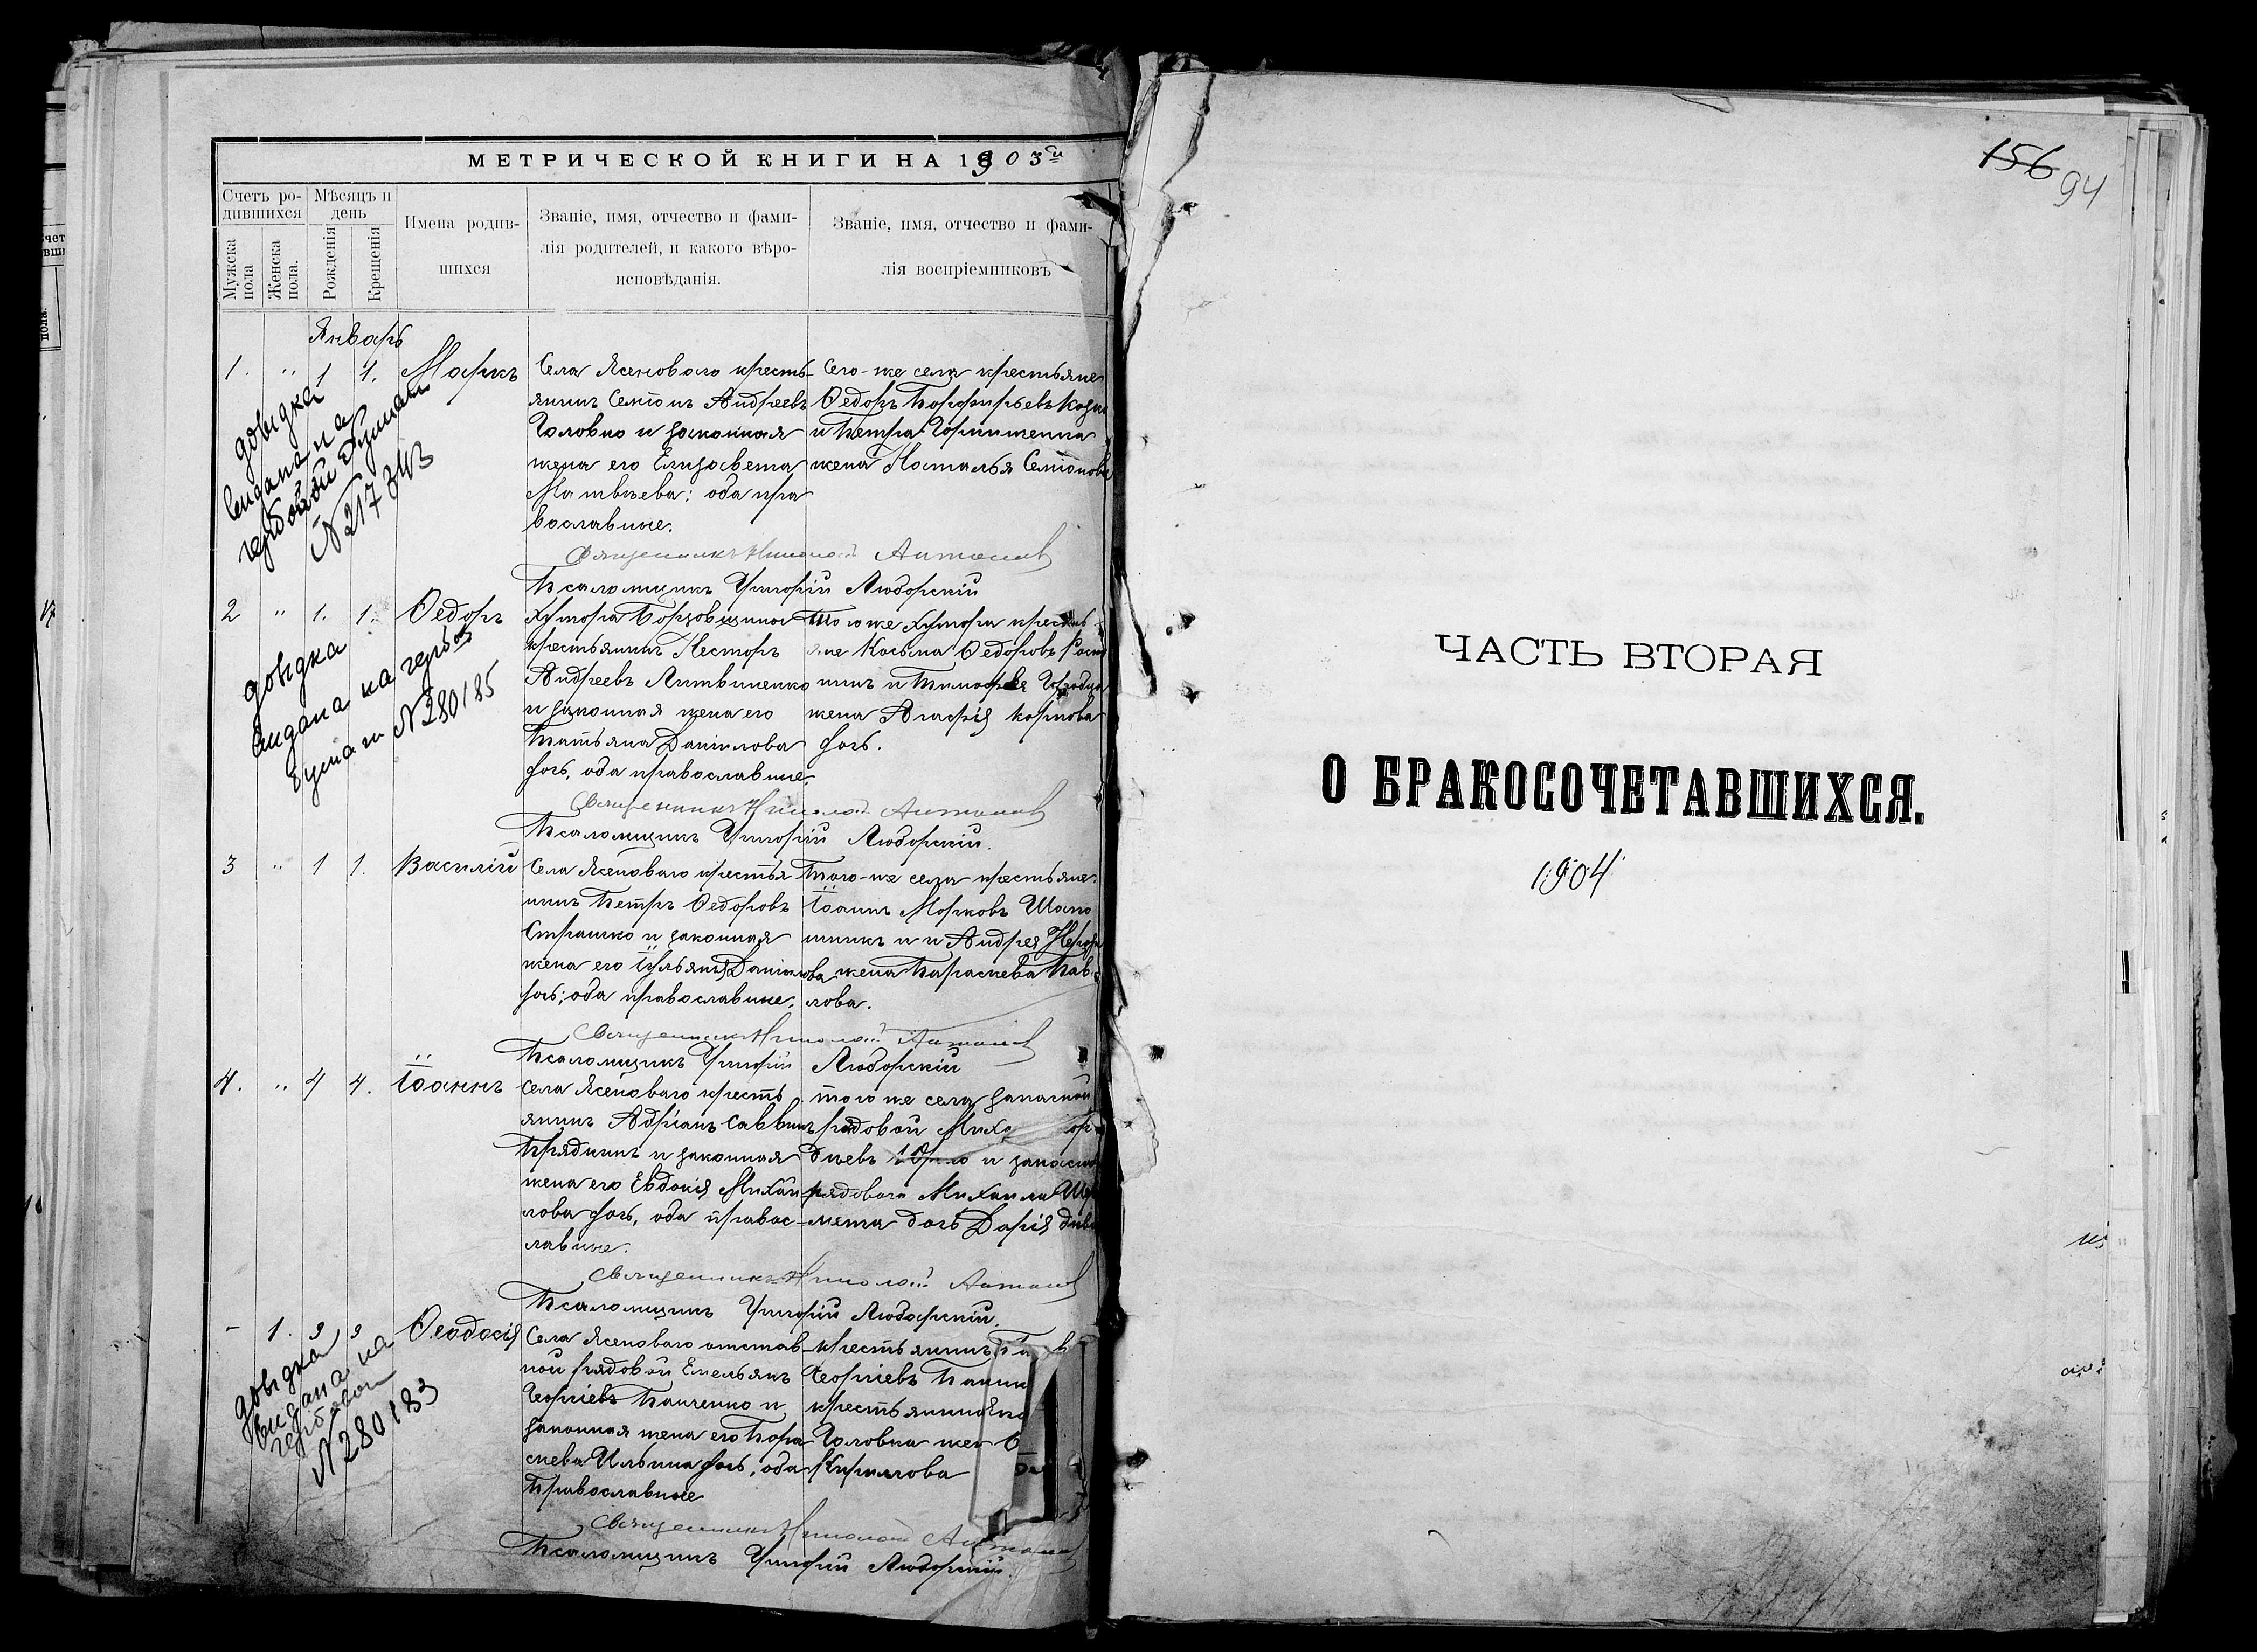 МЕТРИЧЕСКОЙ КНИГИ НА 1903й
Счетъ ро-
дившихся
Мѣсяцъ и
день
Мужска
пола
Женска
пола.
Рожденія
Крещенія
Имена родив-
шихся
Званіе, имя, отчество и фами-
лія родителей, и какого вѣро-
исповѣданія.
Званіе, имя, отчество и фами-
лія воспріемниковъ
Январь
1. " 1 1. Маркъ
Села Ясеноваго кресть-
янинъ Семіонъ Андреевъ
Головко и законная
жена его Елизавета
Матвѣева: оба пра
вославные.
Сего-же села крестьяне
Ѳедоръ Порфирьевъ
и Петра
жена Наталья Семіонова
довідка
видана на
гербовій бумати
N 217343
Священникъ Николай Антонов
Псаломщикъ Григорій Любарскій
2 " 1. 1. Ѳедоръ
Хутора
крестьянинъ Несторъ
Андреевъ Литвиненко
и законная жена его
Татьяна Даніилова
дочь, оба православные,
Того же хутора кресть-
яне Косьма Ѳедоровъ
жена Агафія Карпова
дочь.
довідка
видана на гербов
бумати N 280185
Священникъ Николай Антонов
Псаломщикъ Григорій Любарскій.
3 " 1 1. Василій
Села Ясеноваго крестья
нинъ Петръ Ѳедоровъ
Страшко и законная
жена его Іульянія Даніилова
дочь; оба православные.
Того-же села крестьяне
Іоаннъ Марковъ
и Андрея
жена Параскева Пав-
лова.
Священникъ Николай Антонов
Псаломщикъ Григорій Любарскій
4. " 4 4. Іоаннъ
Села Ясеноваго кресть
янинъ Адріанъ Саввинъ
Прядкинъ и законная
жена его Евдокія Михаи
лова дочь, оба правос-
лавные.
того же села запасной
рядовой
и запаснаго
рядового Михаила
дочь Дарія
Священникъ Николай Антонов
Псаломщикъ Григорій Любарскій.
- 1. 3 3 Ѳеодосія
Села Ясеноваго отстав-
ной рядовой Емельянъ
Георгіевъ Панченко и
законная жена его Пара
скева Ильина дочь, оба
Православные
крестьянинъ
Георгіевъ
Головка
Кирилова
довідка
видана на
гербовом
N 280183
Священникъ Николай Антонов
Псаломщикъ Григорій Любарскій.
156
94
ЧАСТЬ ВТОРАЯ
О БРАКОСОЧЕТАВШИХСЯ.
1904